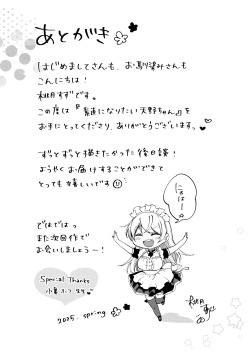 あとがき
はじめましてさんも、お馴染みさんも
こんにちは！
桃月すずです。
この度は『普通になりたい天野ちゃん』を
お手にとってくださり、ありがとうございますっ
ずっとずっと描きたかった後日談！
ようやくお届けすることができて
とっても嬉しいです
ではではっ
また次回作で
お会いしましょう〜！
にぱー
Special Thanks
2025. spring
桃月